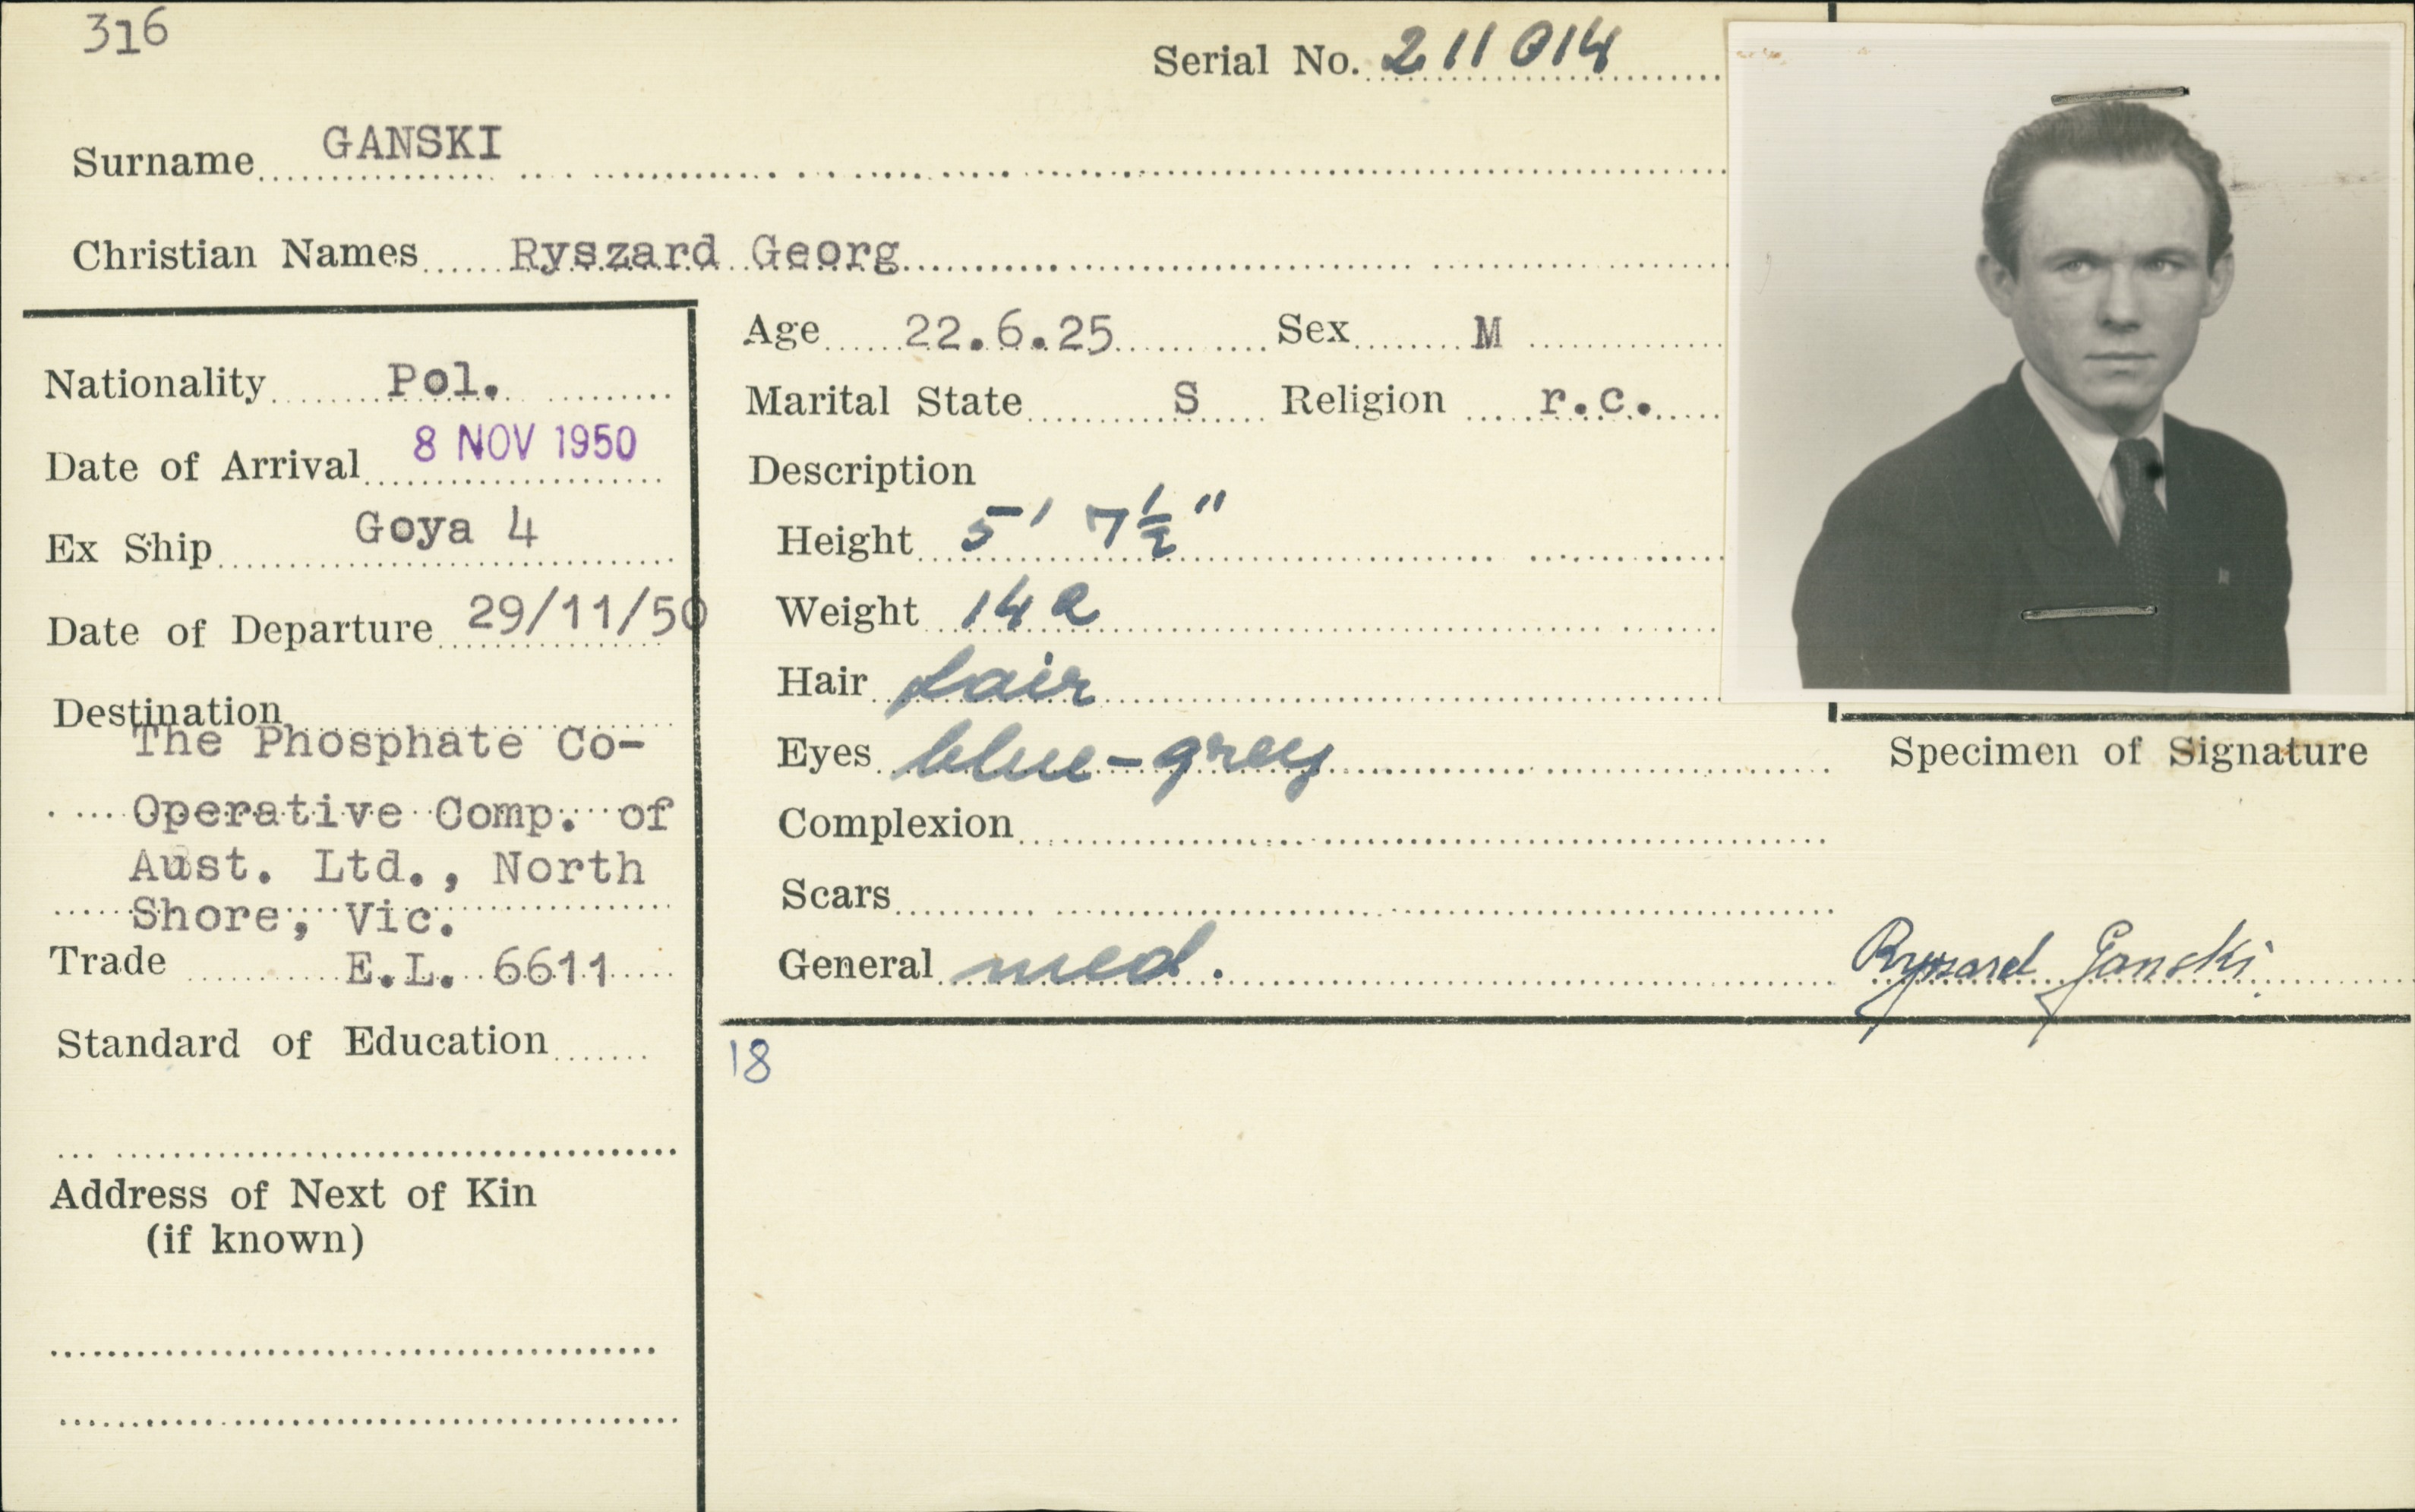 316
Serial No. 211014
Surname GANSKI
Christian Names Ryszard Georg
Nationality Pol.
Date of Arrival 8 NOV 1950
Ex Ship Goya 4
Date of Departure 29/11/50
Destination
The Phosphate Co-
Operative Comp. of
Aust. Ltd., North
Shore, Vic.
Trade E.L. 6611
Standard of Education
Address of Next of Kin
(if known)
Age 22.6.25 Sex M
Marital State S Religion r.c.
Description
Height 5' 7½"
Weight 142
Hair fair
Eyes blue-grey
Complexion
Scars
General med.
18
Specimen of Signature
Ryszard Ganski